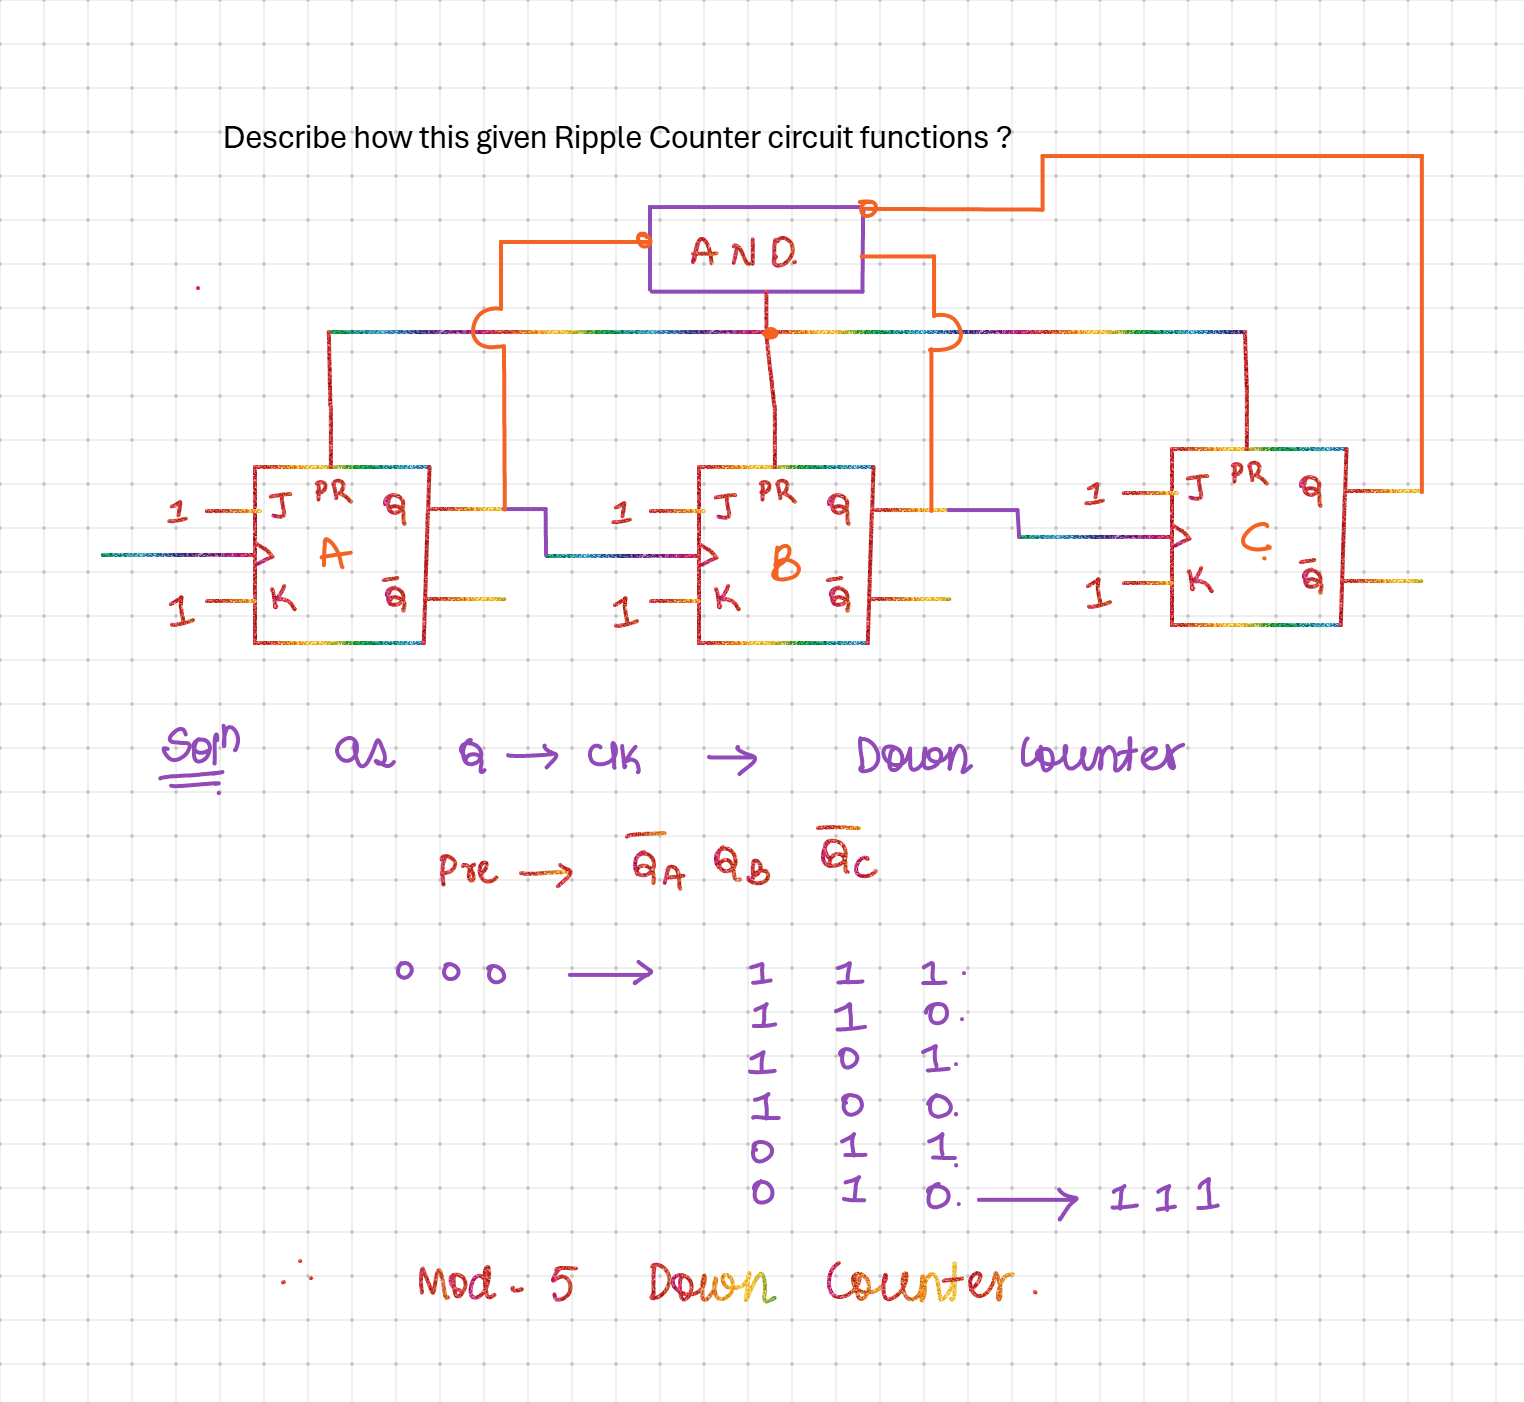 Describe how this given Ripple Counter circuit functions ?
AND.
1 J PR Q 1 J PR Q 1 J PR Q
A B C
1 K Q̅ 1 K Q̅ 1 K Q̅
Solⁿ as Q → clk → Down Counter
Pre → Q̅A QB Q̅C
0 0 0 → 1 1 1.
1 1 0.
1 0 1.
1 0 0.
0 1 1.
0 1 0. → 1 1 1
∴ Mod - 5 Down Counter.